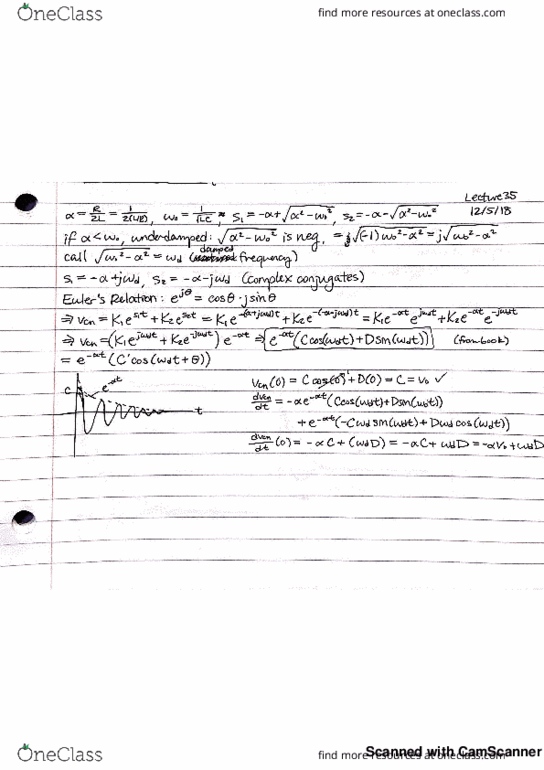 OneClass
find more resources at oneclass.com
Lecture 35
12/5/18
α = R/2L = 1/2(L/R), ω₀ = 1/√LC ⇒ s₁ = -α+√α²-ω₀², s₂ = -α-√α²-ω₀²
if α<ω₀, underdamped: √α²-ω₀² is neg, = √(-1)(ω₀²-α²) = j√ω₀²-α²
call √ω₀²-α² = ωd (damped frequency)
s₁ = -α+jωd, s₂ = -α-jωd (complex conjugates)
Euler's Relation: e^jθ = cosθ·jsinθ
⇒ vcn = K₁e^s₁t + K₂e^s₂t = K₁e^-(α+jωd)t + K₂e^-(α-jωd)t = K₁e^-αt e^jωdt + K₂e^-αt e^-jωdt
⇒ vcn = (K₁e^jωdt + K₂e^-jωdt) e^-αt ⇒ e^-αt (Ccos(ωdt)+Dsin(ωdt)) (from book)
= e^-αt (C'cos(ωdt+θ))
C
e^-αt
t
vcn(0) = C cos(0)+D(0) = C = v₀ ✓
dvcn/dt = -αe^-αt (Ccos(ωdt)+Dsin(ωdt))
+ e^-αt (-Cωd sin(ωdt)+Dωd cos(ωdt))
dvcn/dt (0) = -αC + (ωdD) = -αC + ωdD = -αV₀ + ωdD
OneClass
find more resources at oneclass.com
Scanned with CamScanner